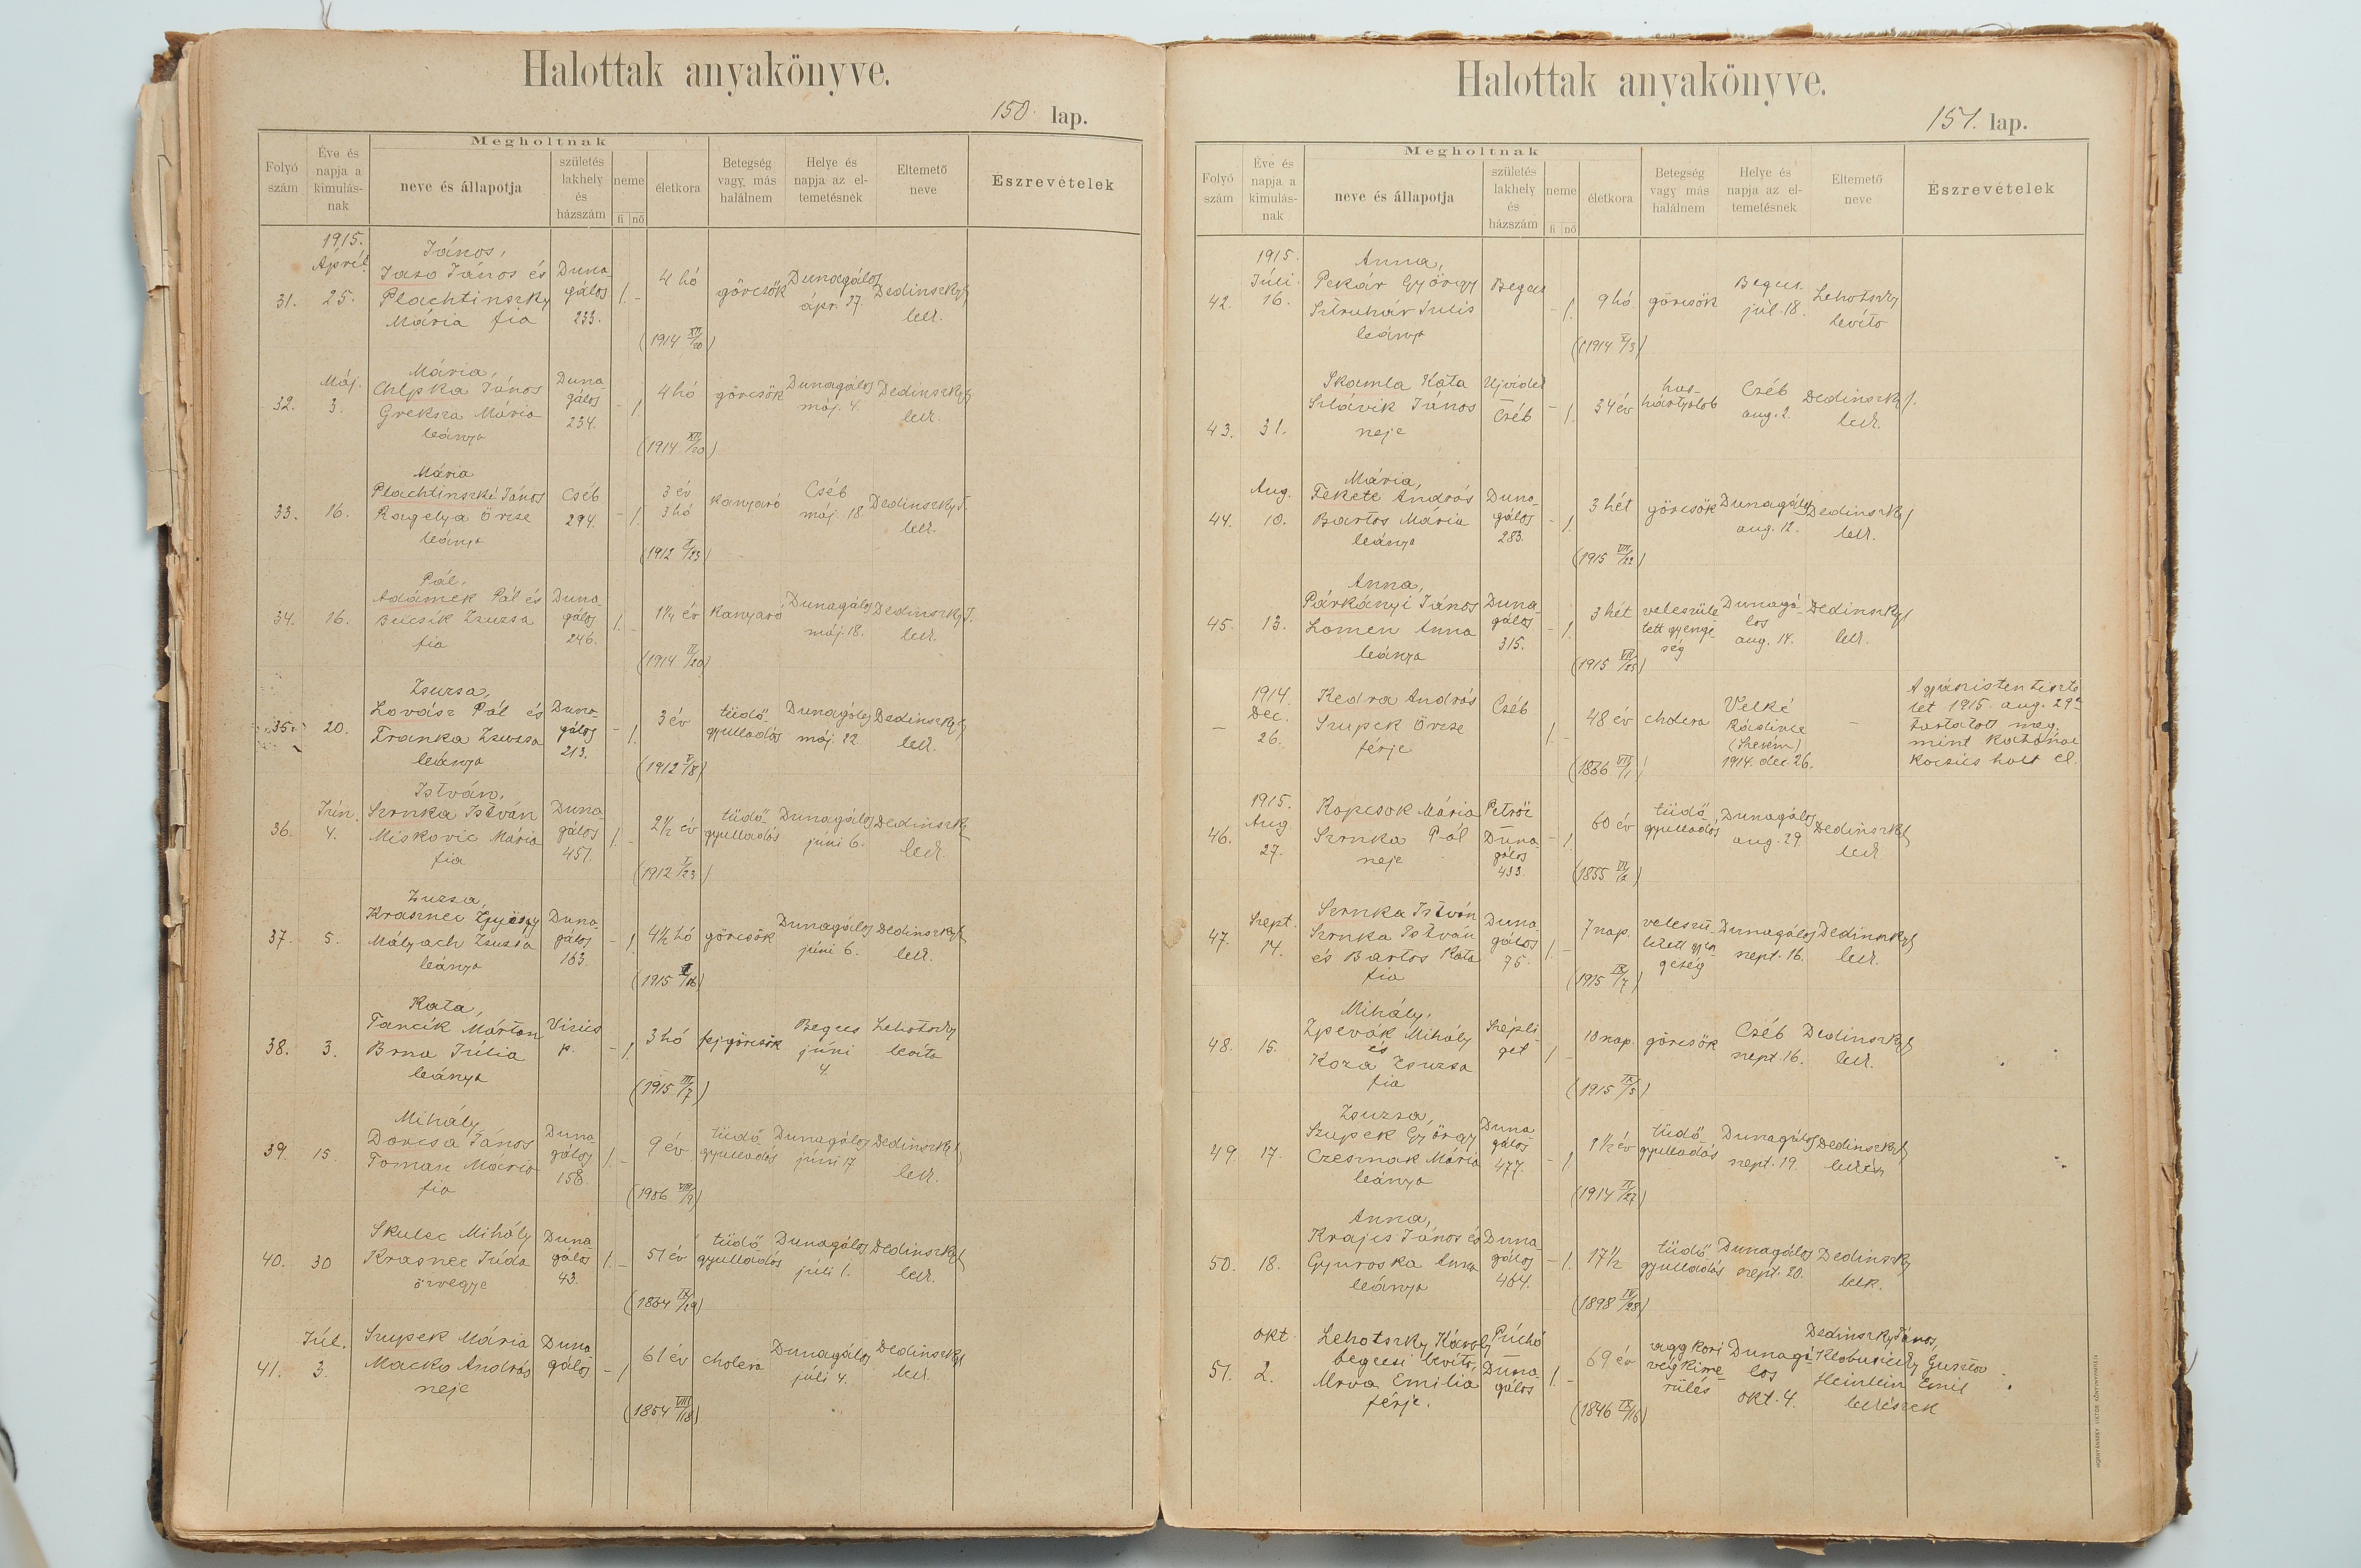 Halottak anyakönyve.
150. lap.
Folyó szám
Éve és napja a kimulás-nak
Megholtnak
neve és állapotja
születés lakhely és házszám
neme
fi nő
életkora
Betegség vagy más halálnem
Helye és napja az el-temetésnek
Eltemető neve
Észrevételek
31. 1915. Április 25.
János,
Jaso János és
Plachtinszky
Mária fia
Duna-gálos 233.
1. -
4 hó
(1914 XII/20)
görcsök
Dunagálos ápr. 27.
Dedinszky J. lelk.
32. Máj. 3.
Mária,
Chlpka János
Greksza Mária
leánya
Duna-gálos 234.
- 1.
4 hó
(1914 XII/20)
görcsök
Dunagálos máj. 4.
Dedinszky J. lelk.
33. 16.
Mária
Plachtinszki János
Ragelya Örzse
leánya
Cséb 294.
- 1.
3 év 3 hó
kanyaró
Cséb máj. 18
Dedinszky J. lelk.
34. 16.
Pál,
Adámek Pál és
Bucsík Zsuzsa
fia
Duna-gálos 246.
1. -
1 1/4 év
kanyaró
Dunagálos máj. 18.
Dedinszky J. lelk.
35. 20.
Zsuzsa,
Lovász Pál és
Franka Zsuzsa
leánya
Duna-gálos 213.
- 1.
3 év
(1912 V/8)
tüdő-gyulladás
Dunagálos máj. 22
Dedinszky J. lelk.
36. Jún. 4.
István,
Szrnka István
Miskovic Mária
fia
Duna-gálos 451.
1. -
2 1/2 év
tüdő-gyulladás
Dunagálos júni 6.
Dedinszky lelk.
37. 5.
Zuzsa,
Krasznec György
Mályach Zsuzsa
leánya
Duna-gálos 163.
- 1.
4 1/2 hó
görcsök
Dunagálos júni 6.
Dedinszky J. lelk.
38. 3.
Kata,
Tancík Márton
Brna Júlia
leánya
Vizics p.
- 1.
3 hó
(1915 III/7)
fejgörcsök
Begecs júni 4.
Lehotszky levita
39. 15.
Mihály,
Dorcsa János
Toman Mária
fia
Duna-gálos 158.
1. -
9 év
tüdő-gyulladás
Dunagálos júni 17
Dedinszky J. lelk.
40. 30
Skulec Mihály
Krasnec Júda
özvegye
Duna-gálos 43.
1. -
51 év
(1864 IX/29)
tüdő gyulladás
Dunagálos júli 1.
Dedinszky J. lelk.
41. Júl. 3.
Szupek Mária
Macko András
neje
Duna-gálos
- 1
61 év
(1854 VIII/18)
cholera
Dunagálos júli 4.
Dedinszky J. lelk.
Halottak anyakönyve.
151. lap.
Folyó szám
Éve és napja a kimulás-nak
Megholtnak
neve és állapotja
születés lakhely és házszám
neme
fi nő
életkora
Betegség vagy más halálnem
Helye és napja az el-temetésnek
Eltemető neve
Észrevételek
42. 1915. Júli. 16.
Anna,
Pekár György
Sztruhár Julis
leánya
Begecs
- 1.
9 hó
(1914 X/3)
görcsök
Begecs júl. 18.
Lehotszky levita
43. 31.
Skamla Kata
Szlávik János
neje
Ujvidék
Cséb
- 1.
34 év
has-hártyalob
Cséb aug. 2.
Dedinszky J. lelk.
44. Aug. 10.
Mária,
Fekete András
Bartos Mária
leánya
Duna-gálos 283.
- 1.
3 hét
(1915 VII/22)
görcsök
Dunagálos aug. 12.
Dedinszky J lelk.
45. 13.
Anna,
Párkányi János
Lomen Anna
leánya
Duna-gálos 315.
- 1.
3 hét
(1915 VII/25)
veleszüle tett gyenge ség
Dunagá-los aug. 14.
Dedinszky J lelk.
— 1914. Dec. 26.
Kedra András
Szupek Örzse
férje
Cséb
1. -
48 év
(1866 VIII/1)
cholera
Velké Rádince (Szerém) 1914. dec 26.
—
A gyászistentiszte
let 1915. aug. 29én
tartatott meg,
mint katonai
kocsis halt el.
46. 1915. Aug 27.
Kopcsok Mária
Szrnka Pál
neje
Petrőc
Duna-gálos 433.
- 1.
60 év
tüdő gyulladás
Dunagálos aug. 29
Dedinszky J lelk
47. Szept. 14.
Szrnka István
Szrnka István
és Bartos Kata
fia
Duna-gálos 75.
1. -
7 nap.
(1915 IX/7)
veleszü-letett gyen geség
Dunagálos szept. 16.
Dedinszky J lelk.
48. 15.
Mihály,
Zpevák Mihály
és
Koza Zsuzsa
fia
Szépli-get
1 -
10 nap.
(1915 IX/5)
görcsök
Cséb szept. 16.
Dedinszky J lelk.
49. 17.
Zsuzsa,
Szupek György
Czesznak Mária
leánya
Duna gálos 477.
- 1
1 1/2 év
tüdő gyulladás
Dunagálos szept. 19.
Dedinszky J lelkész
50. 18.
Anna,
Krajcs János és
Gyuroska Anna
leánya
Duna-gálos 464.
- 1.
17 1/2
(1898 IV/28)
tüdő gyulladás
Dunagálos szept. 20.
Dedinszky lelk.
51. Okt. 2.
Lehotszky Károly
begecsi levita,
Mrva Emilia
férje.
Púchó
Duna-gálos
1. -
69 év
(1846 IX/16)
aggkori végkime-rülés
Dunagá-los okt. 4.
Dedinszky János,
Klobusiczky Gusztáv
Heinlein Emil
lelkészek